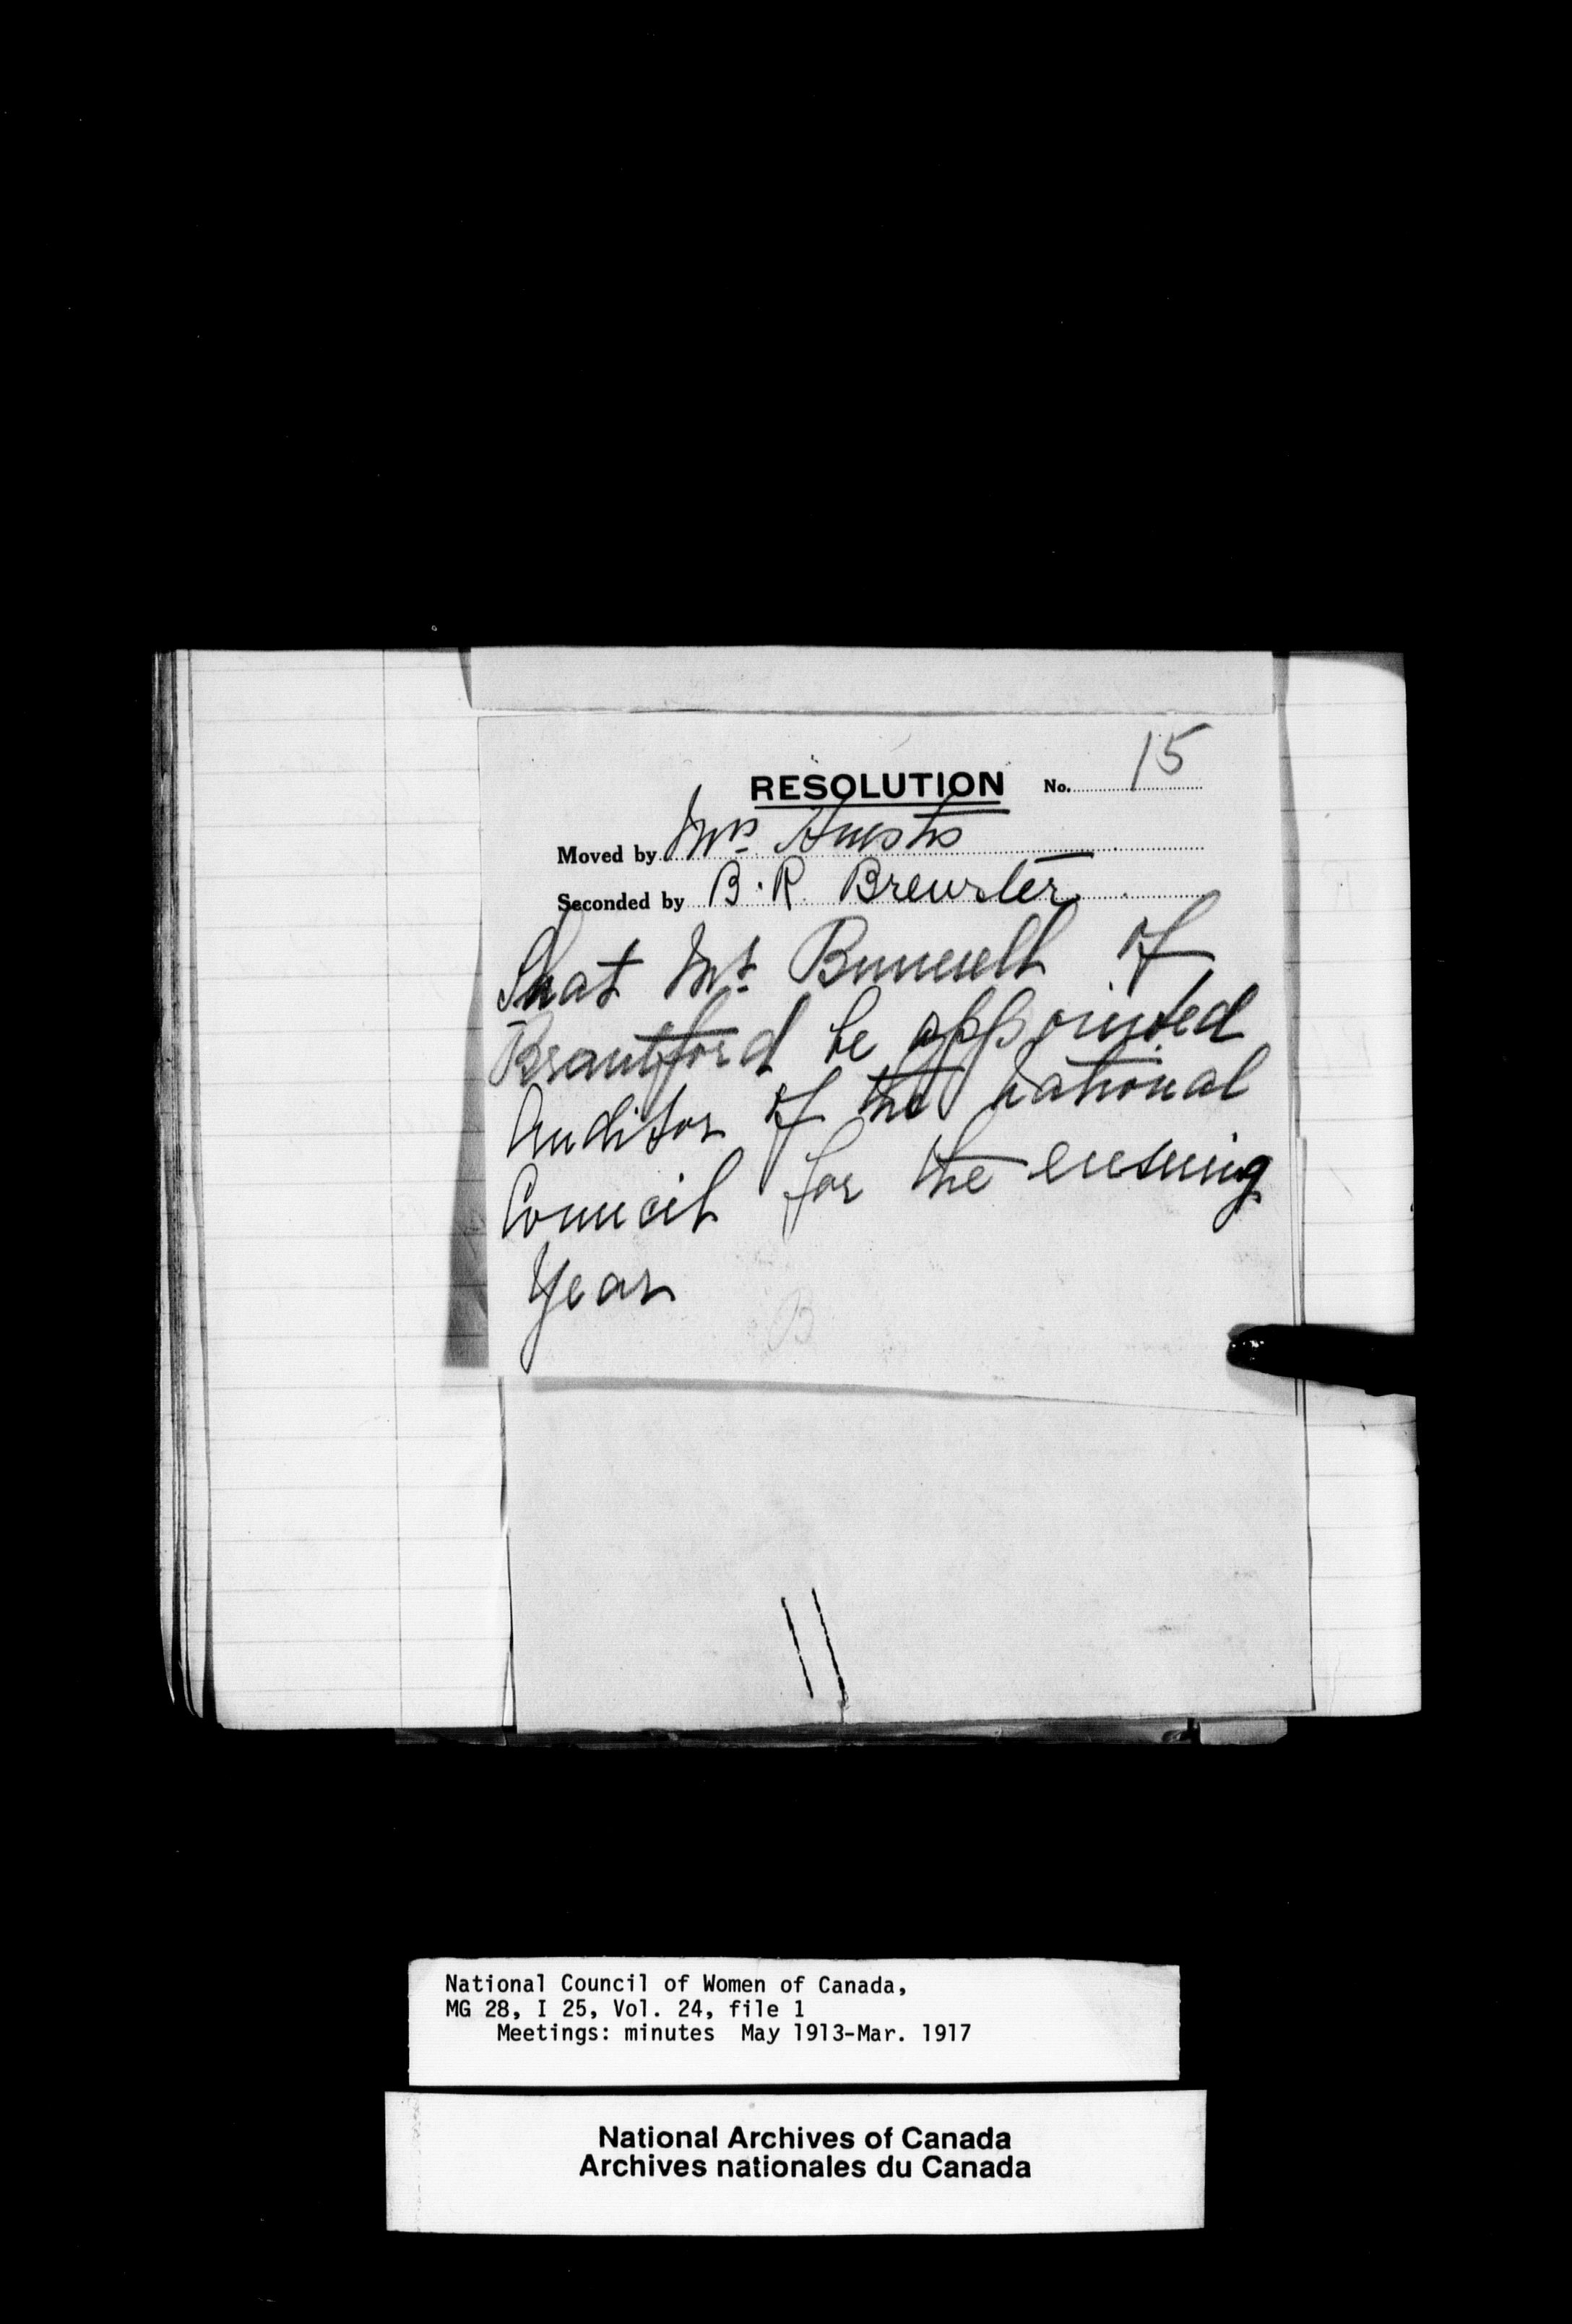 RESOLUTION No. 15
Moved by Mrs Huestis
Seconded by B. R. Brewster
That Mr. Bunnell of
Brantford be appointed
Auditor of the National
Council for the ensuing
Year
National Council of Women of Canada,
MG 28, I 25, Vol. 24, file 1
Meetings: minutes May 1913-Mar. 1917
National Archives of Canada
Archives nationales du Canada